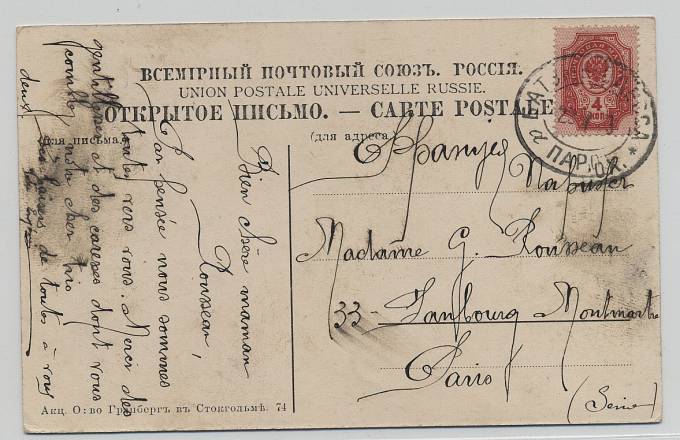 ВСЕМІРНЫЙ ПОЧТОВЫЙ СОЮЗЪ. РОССІЯ.
UNION POSTALE UNIVERSELLE RUSSIE.
ОТКРЫТОЕ ПИСЬМО. — CARTE POSTALE
(для письма)
(для адреса)
4
КОП.
ПАРОХ.
Madame G. Rousseau
33 Faubourg Montmartre
Paris
(Seine)
Bien chère maman
Rousseau,
Par pensée nous sommes
toutes vers vous. Merci des
gentillesses et des caresses dont vous
comblez notre cher
deux
baisers de toutes à vous
Акц. О-во Гранбергъ въ Стокгольмѣ. 74